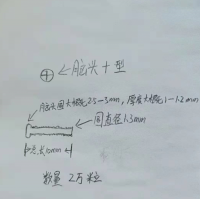 ⊕ ← 脑头十型
脑头圆大概配2.5-3mm,厚度大概1-1.2mm
圆直径1.3mm
10mm
数量 2万粒